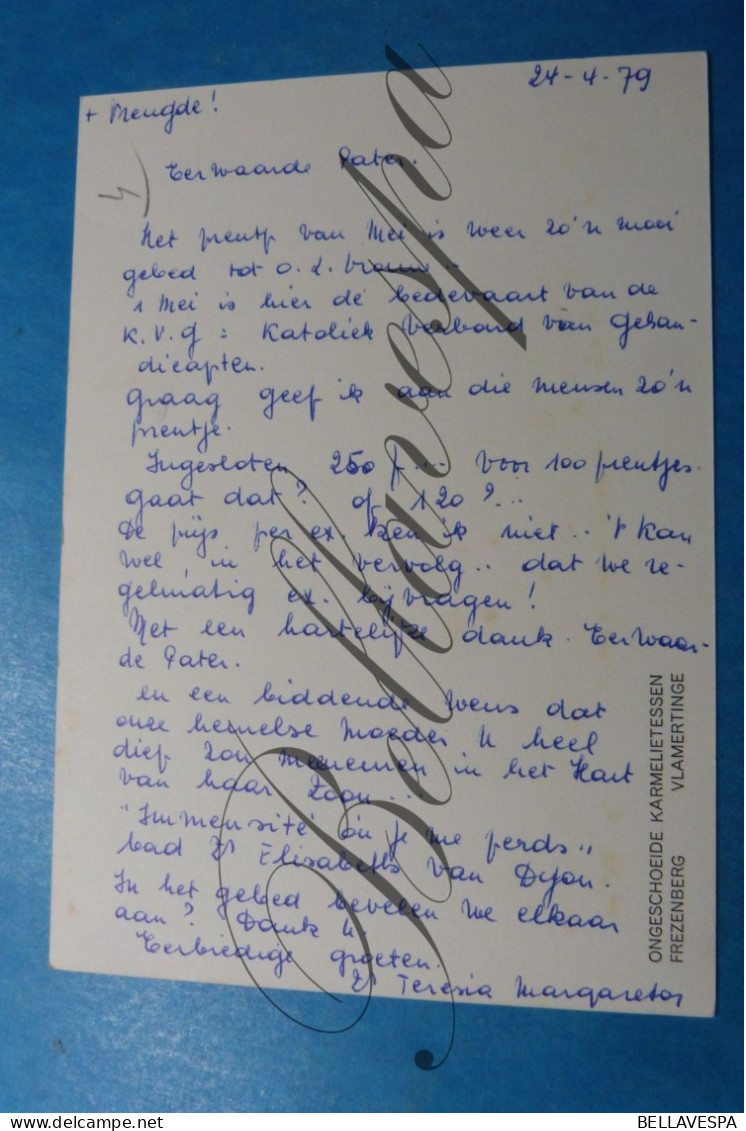 24-4-79
+ Vreugde!
Eerwaarde Pater.
Het prentje van Mei is weer zo'n mooi
gebed tot O.L. Vrouw..
1 Mei is hier dé bedevaart van de
K.V.G: Katoliek Verbond van Gehan-
dicapten.
graag geef ik aan die mensen zo'n
prentje.
Ingesloten 250 f.... voor 100 prentjes.
gaat dat? of 120?...
De prijs per ex. ken ik niet.. 't kan
wel, in het vervolg.. dat we re-
gelmatig ex. bijvragen!
Met een hartelijke dank. Eerwaar-
de Pater.
en een biddende wens dat
onze hemelse Moeder U heel
diep zou meenemen in het Hart
van haar Zoon...
"Immensité où je me perds"
bad Zr Elisabeth van Dyon.
In het gebed bevelen we elkaar
aan? Dank U.
Eerbiedige groeten.
Zr Teresia Margareta
ONGESCHOEIDE KARMELIETESSEN
FREZENBERG VLAMERTINGE
Bellavespa
BELLAVESPA